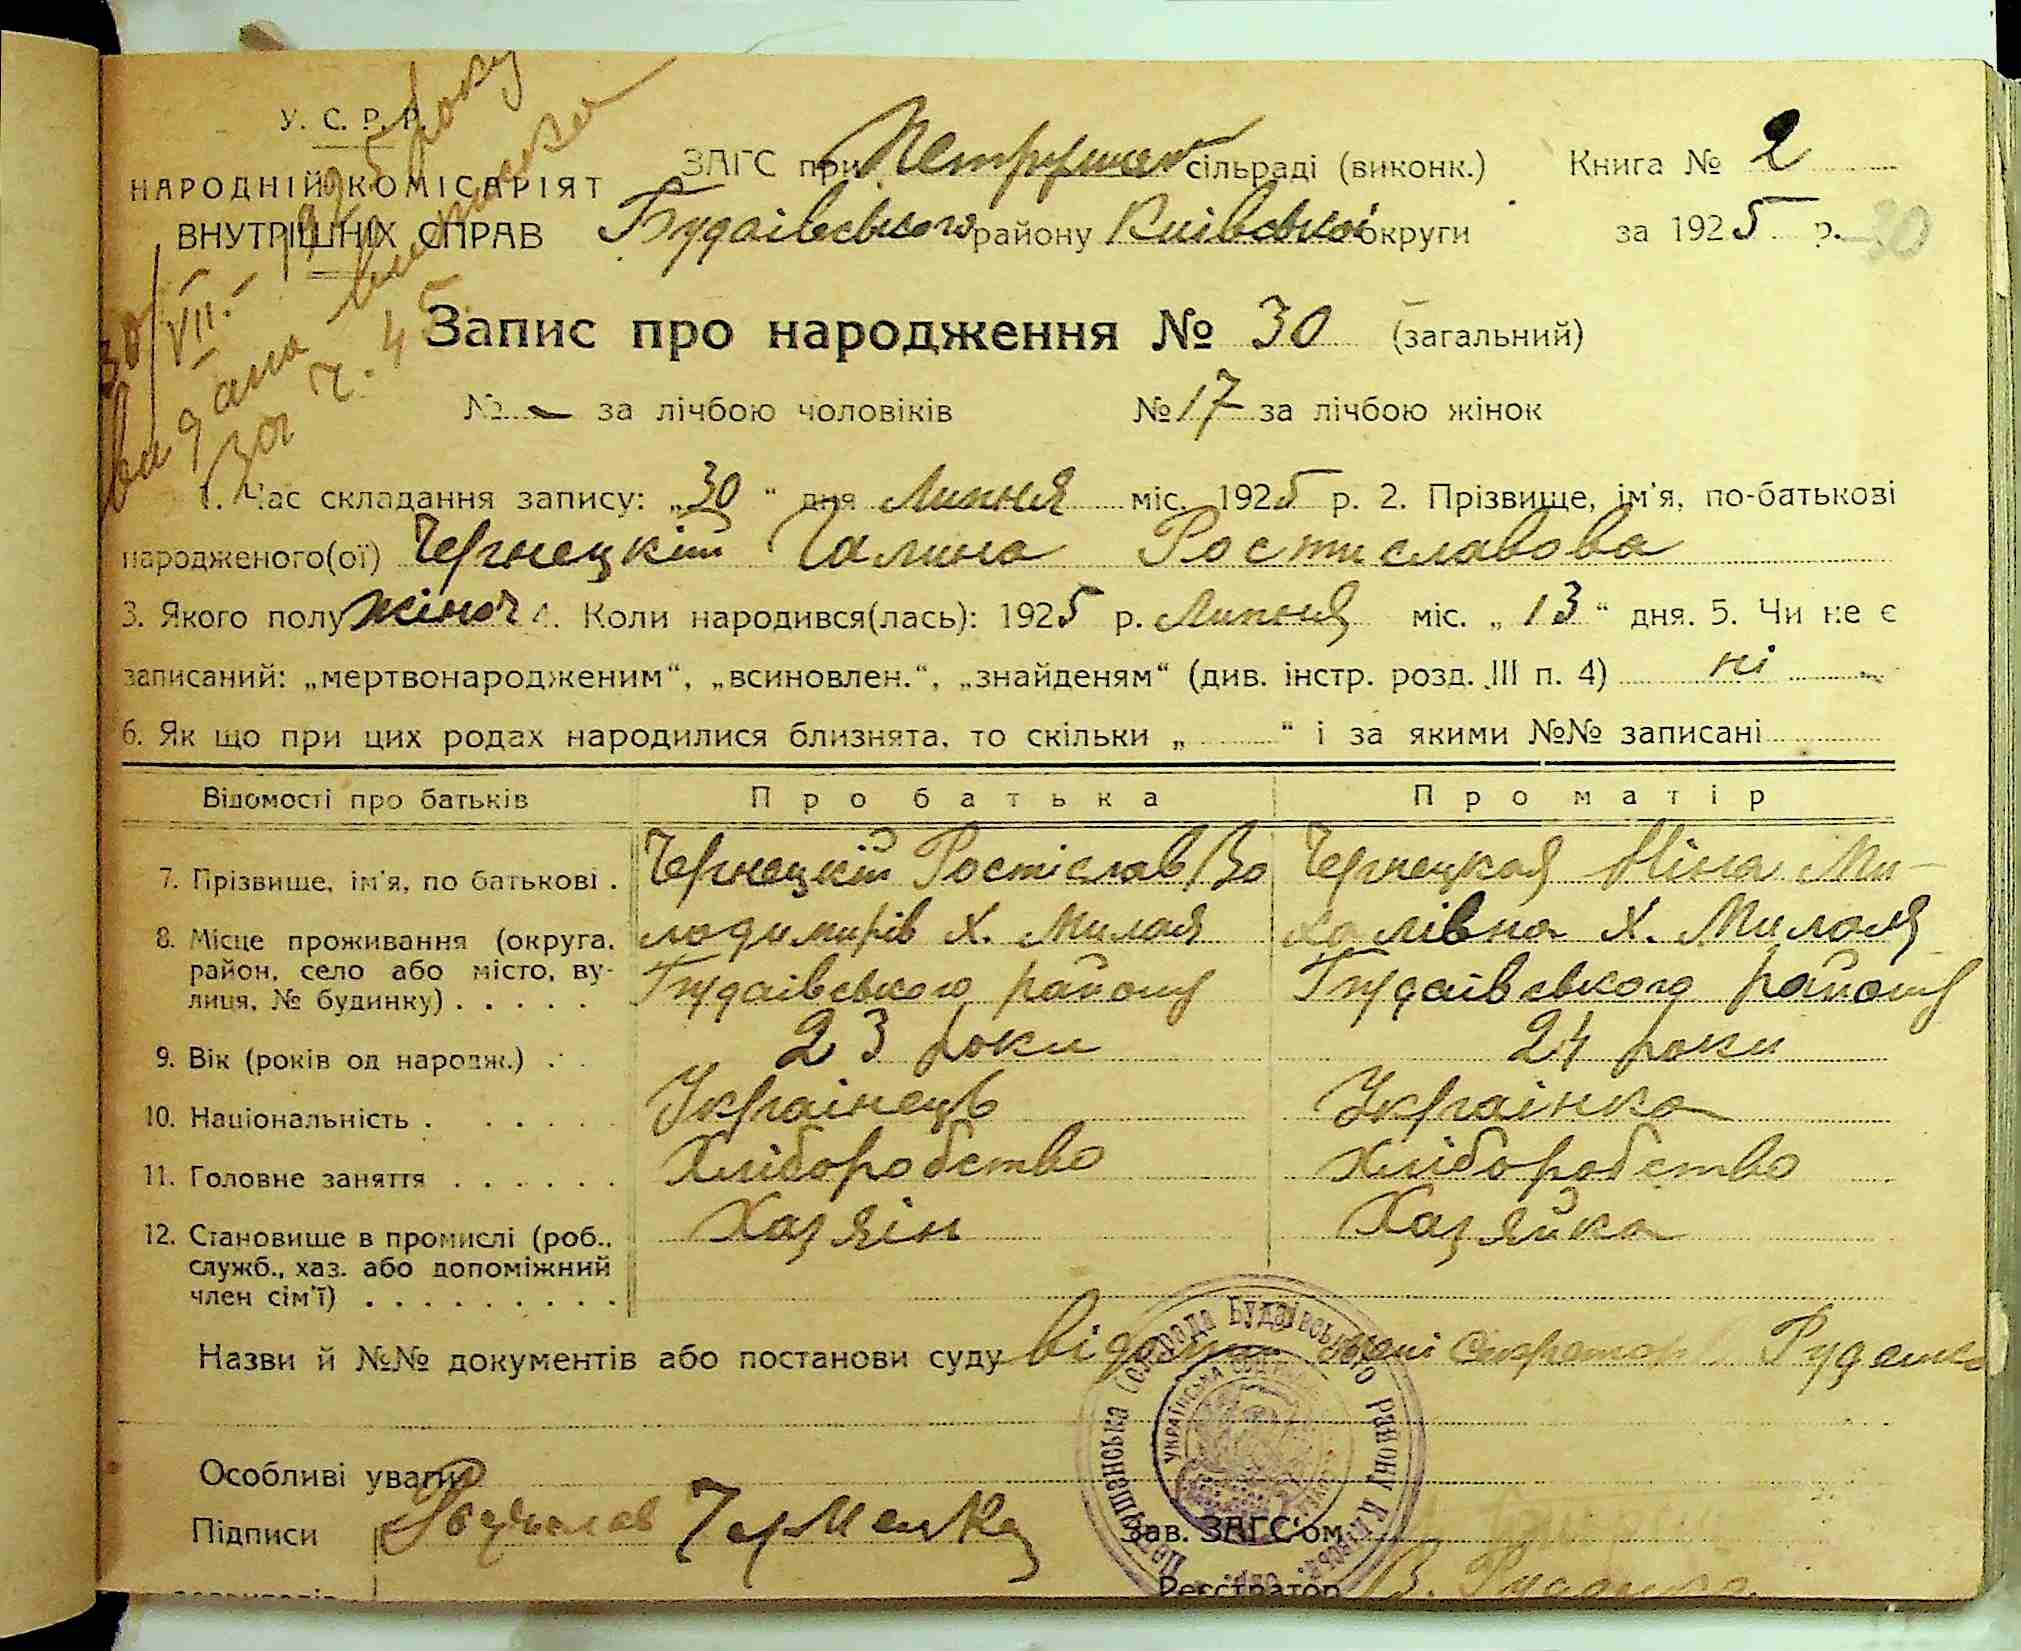 30/VII. 1925 року
видана виписка
за ч. 45
У. С. Р. Р.
НАРОДНІЙ КОМІСАРІЯТ
ВНУТРІШНІХ СПРАВ
ЗАГС при Петрушан сільраді (виконк.) Книга № 2
Будаівського району Киівськоі округи за 1925 р. 30
Запис про народження № 30 (загальний)
№ – за лічбою чоловіків № 17 за лічбою жінок
1. Час складання запису: „30“ дня Липня міс. 1925 р. 2. Прізвище, ім'я, по-батькові
народженого(ої) Чернецкій Галина Ростиславова
3. Якого полу жіноч 4. Коли народився(лась): 1925 р. Липня міс. „13“ дня. 5. Чи не є
записаний: „мертвонародженим“, „всиновлен.“, „знайденям“ (див. інстр. розд. III п. 4) ні
6. Як що при цих родах народилися близнята, то скільки „ “ і за якими №№ записані
Відомості про батьків Про батька Про матір
7. Прізвище, ім'я, по батькові . Чернецкій Ростіслав Во Чернецкая Ніна Ми-
8. Місце проживання (округа, лодимирів Х. Милая халівна Х. Милая
район, село або місто, ву- Будаівського району Будаівського району
лиця, № будинку) . . . . .
9. Вік (років од народж.) . . 23 роки 24 роки
10. Національність . . . . . . Украінець Украінка
11. Головне заняття . . . . . . Хліборобство Хліборобство
12. Становище в промислі (роб., Хазяін Хазяйка
служб., хаз. або допоміжний
член сім'ї) . . . . . . . . .
Назви й №№ документів або постанови суду відомі мені Руденко
сільрада Будаївського району Київськ. окр.
УКРАЇНСЬКА
Особливі уваги
Підписи Зав. ЗАГС'ом
Реєстратор В. Руденко